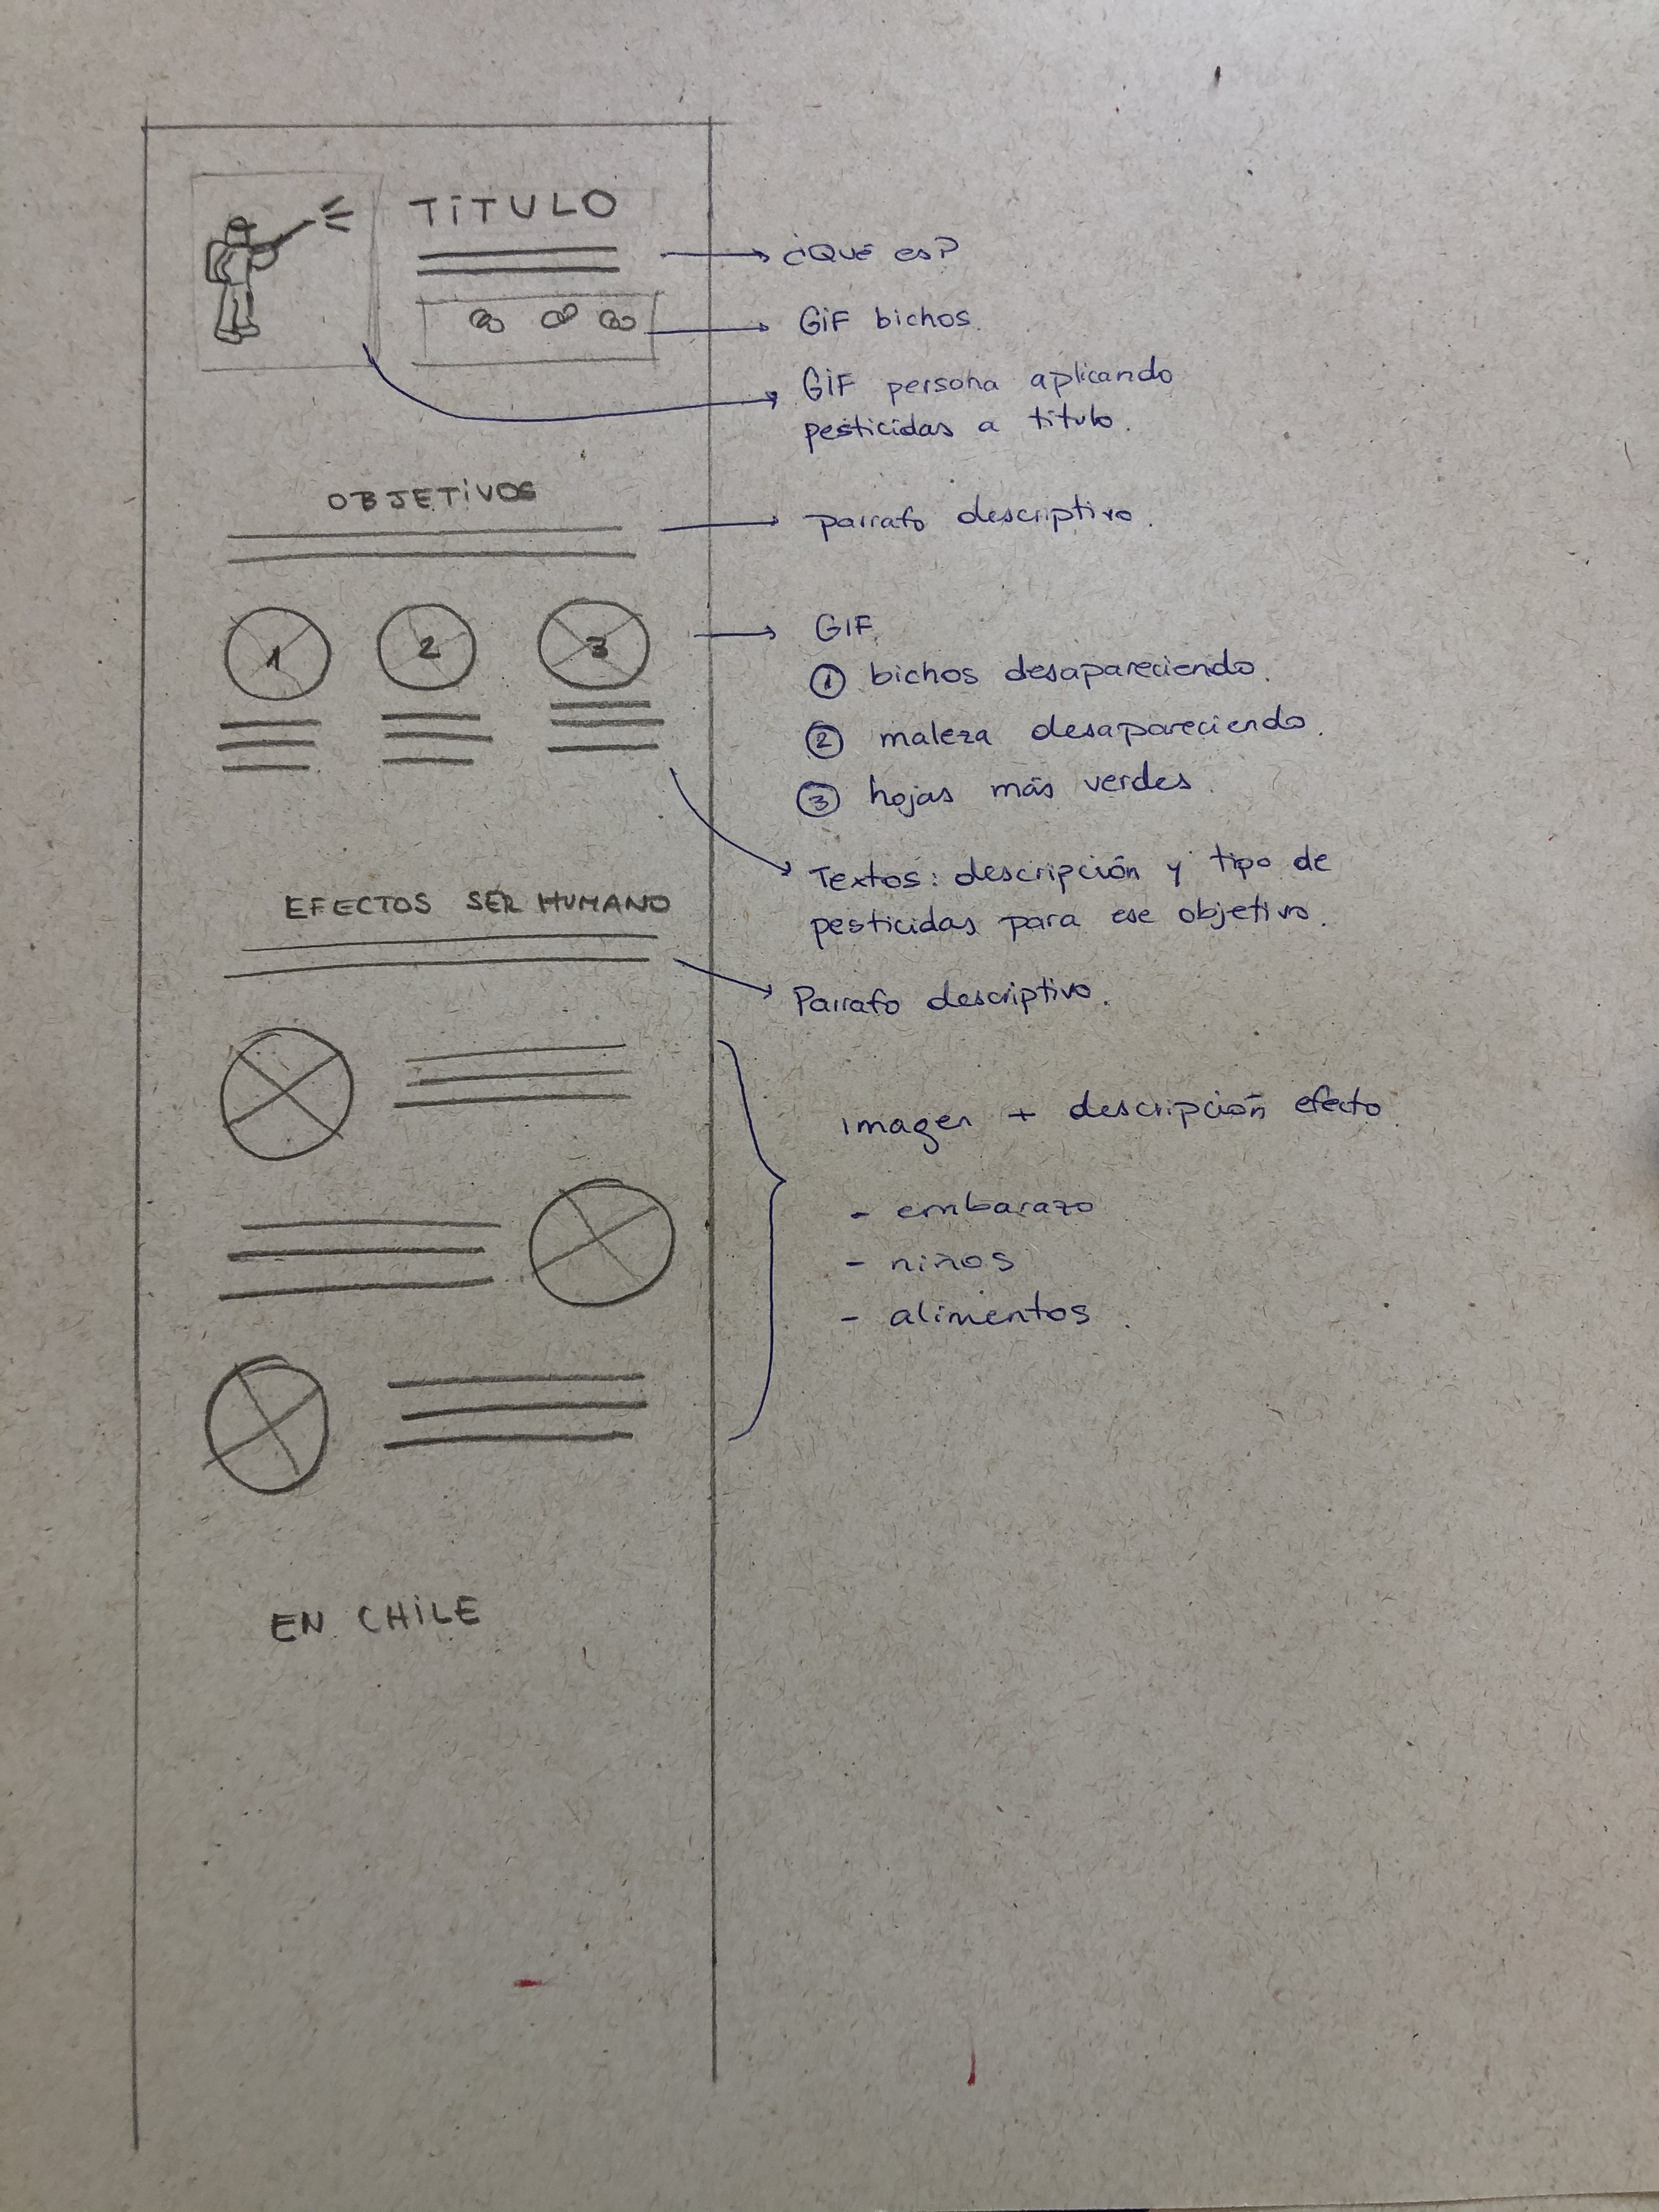 TiTULO
¿QUé es?
GiF bichos.
GiF persona aplicando
pesticidas a titulo.
OBJETiVOS
parrafo descriptivo.
1
2
3
GIF.
① bichos desapareciendo.
② maleza desapareciendo.
③ hojas más verdes.
Textos: descripción y tipo de
pesticidas para ese objetivo.
EFECTOS SER HUMANO
Parrafo descriptivo.
imagen + descripción efecto.
- embarazo
- niños
- alimentos.
EN CHiLE